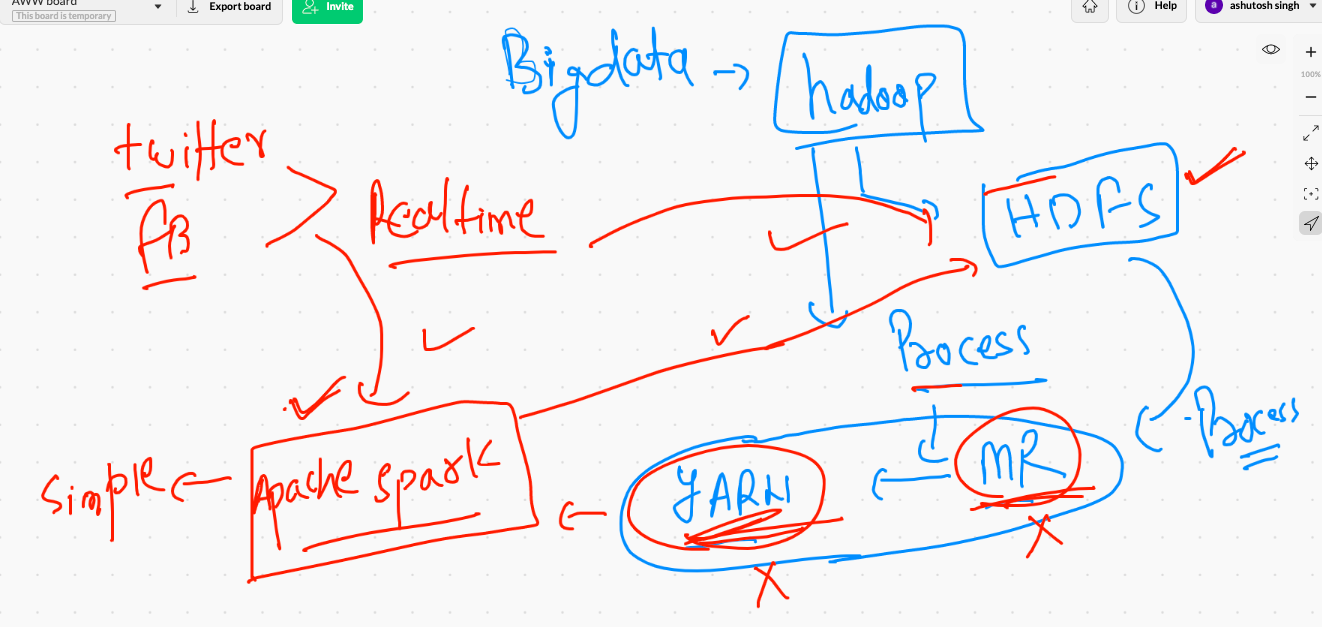 AWW board
This board is temporary
Export board
Invite
Help
a
ashutosh singh
100%
Bigdata → hadoop
twitter
FB
Realtime
HDFS
Process
Process
Simple ← Apache Spark ← YARN ← MR